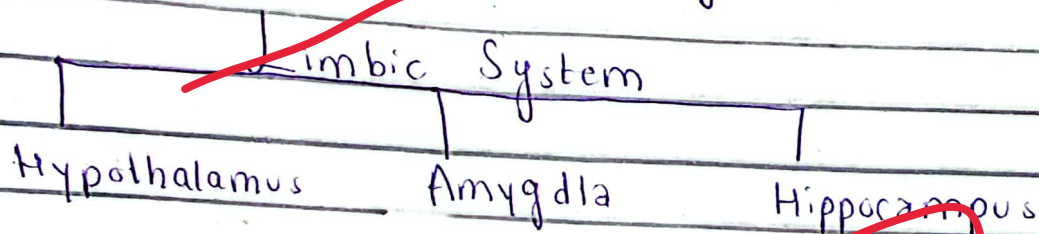 Limbic System
Hypothalamus Amygdla Hippocampus